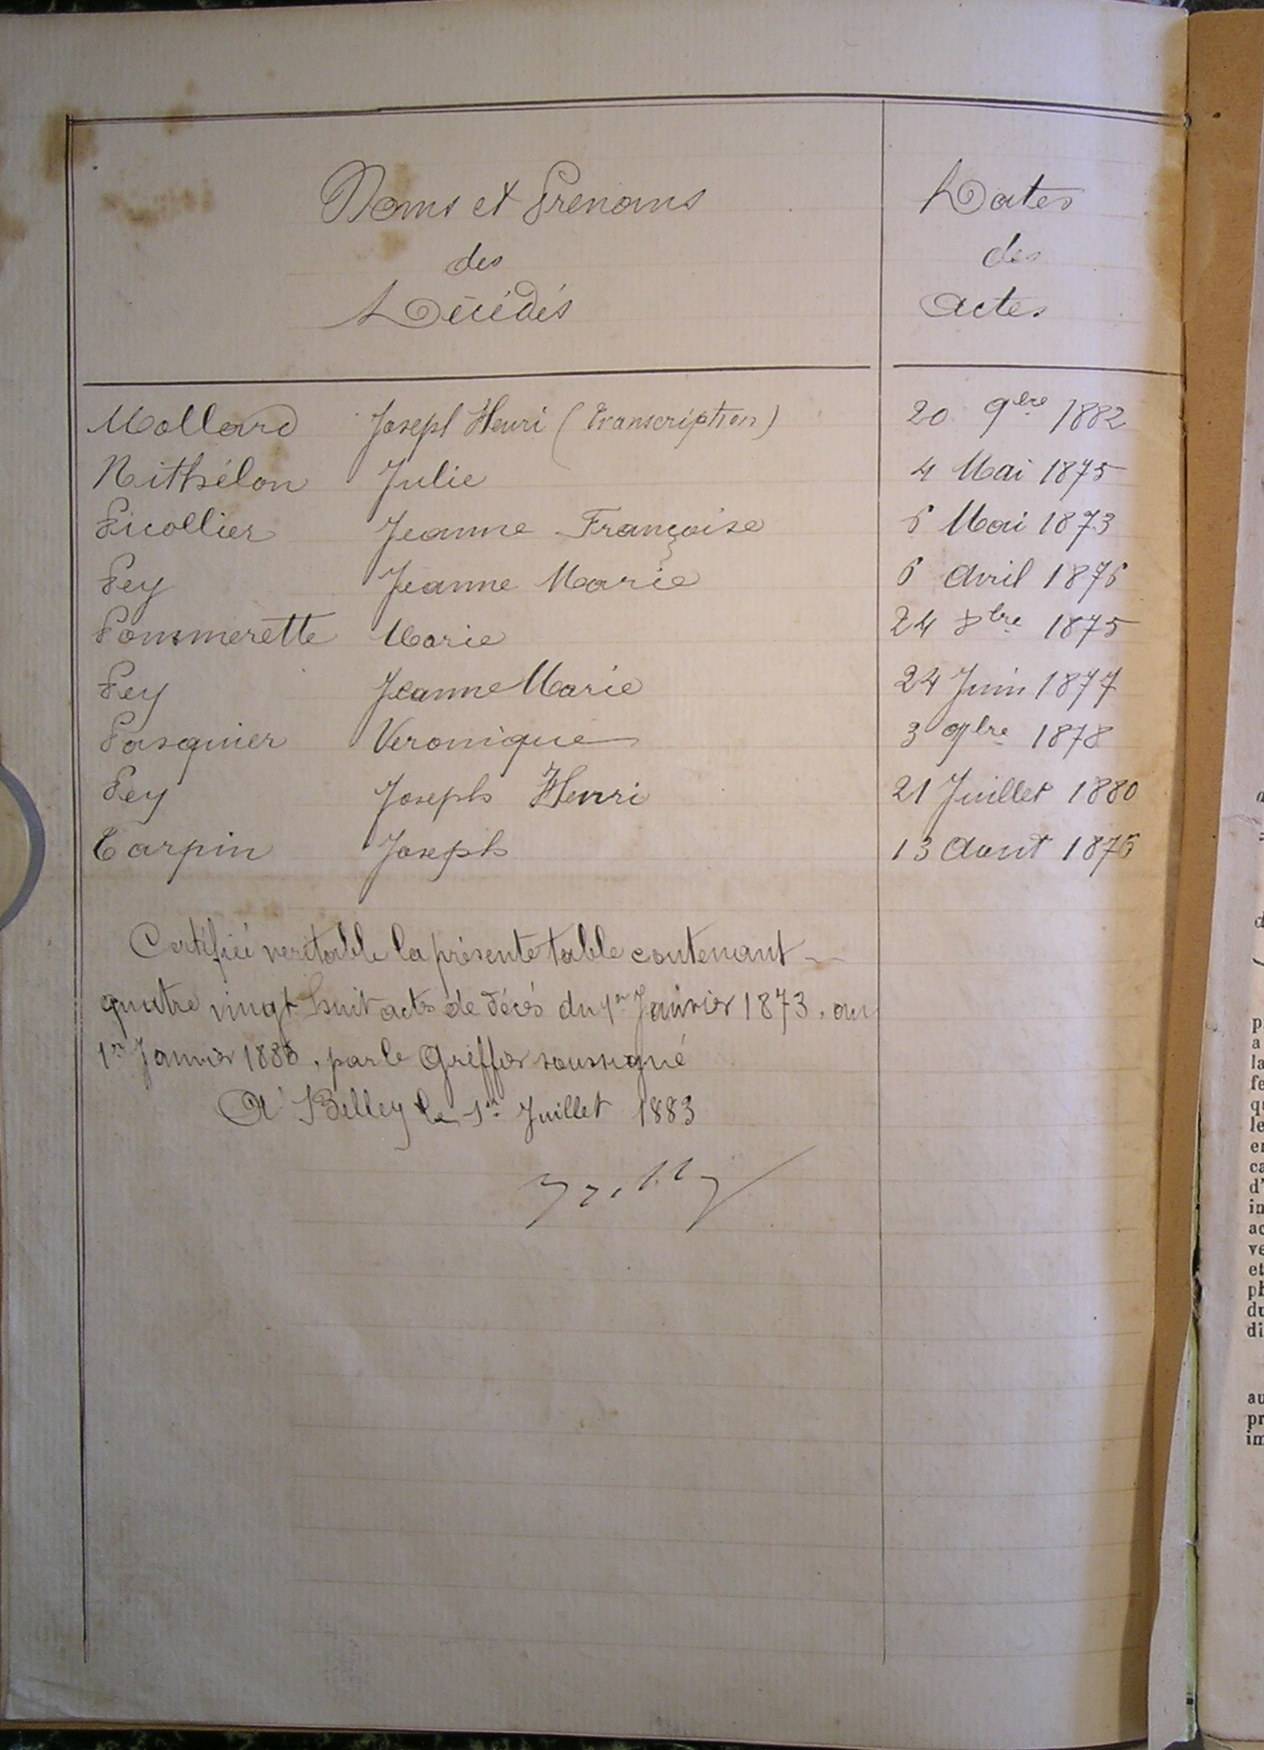 Noms et Prenoms
des
Décédés
Dates
des
Actes
Mollard Joseph Henri (Transcription) 20 9bre 1882
Nithélon Julie 4 Mai 1875
Picollier Jeanne Françoise 6 Mai 1873
Pey Jeanne Marie 6 Avril 1876
Pommerette Marie 24 8bre 1875
Pey Jeanne Marie 24 Juin 1877
Pasquier Veronique 3 9bre 1878
Pey Joseph Henri 21 Juillet 1880
Tarpin Joseph 13 Aout 1876
Certifiée veritable la présente table contenant
quatre vingt huit actes de décès du 1er Janvier 1873, au
1er Janvier 1883, par le Greffier soussigné
A Belley le 1er Juillet 1883
p
a
la
fe
qu
le
en
ca
d'
in
ac
ve
et
ph
du
di
au
pr
im